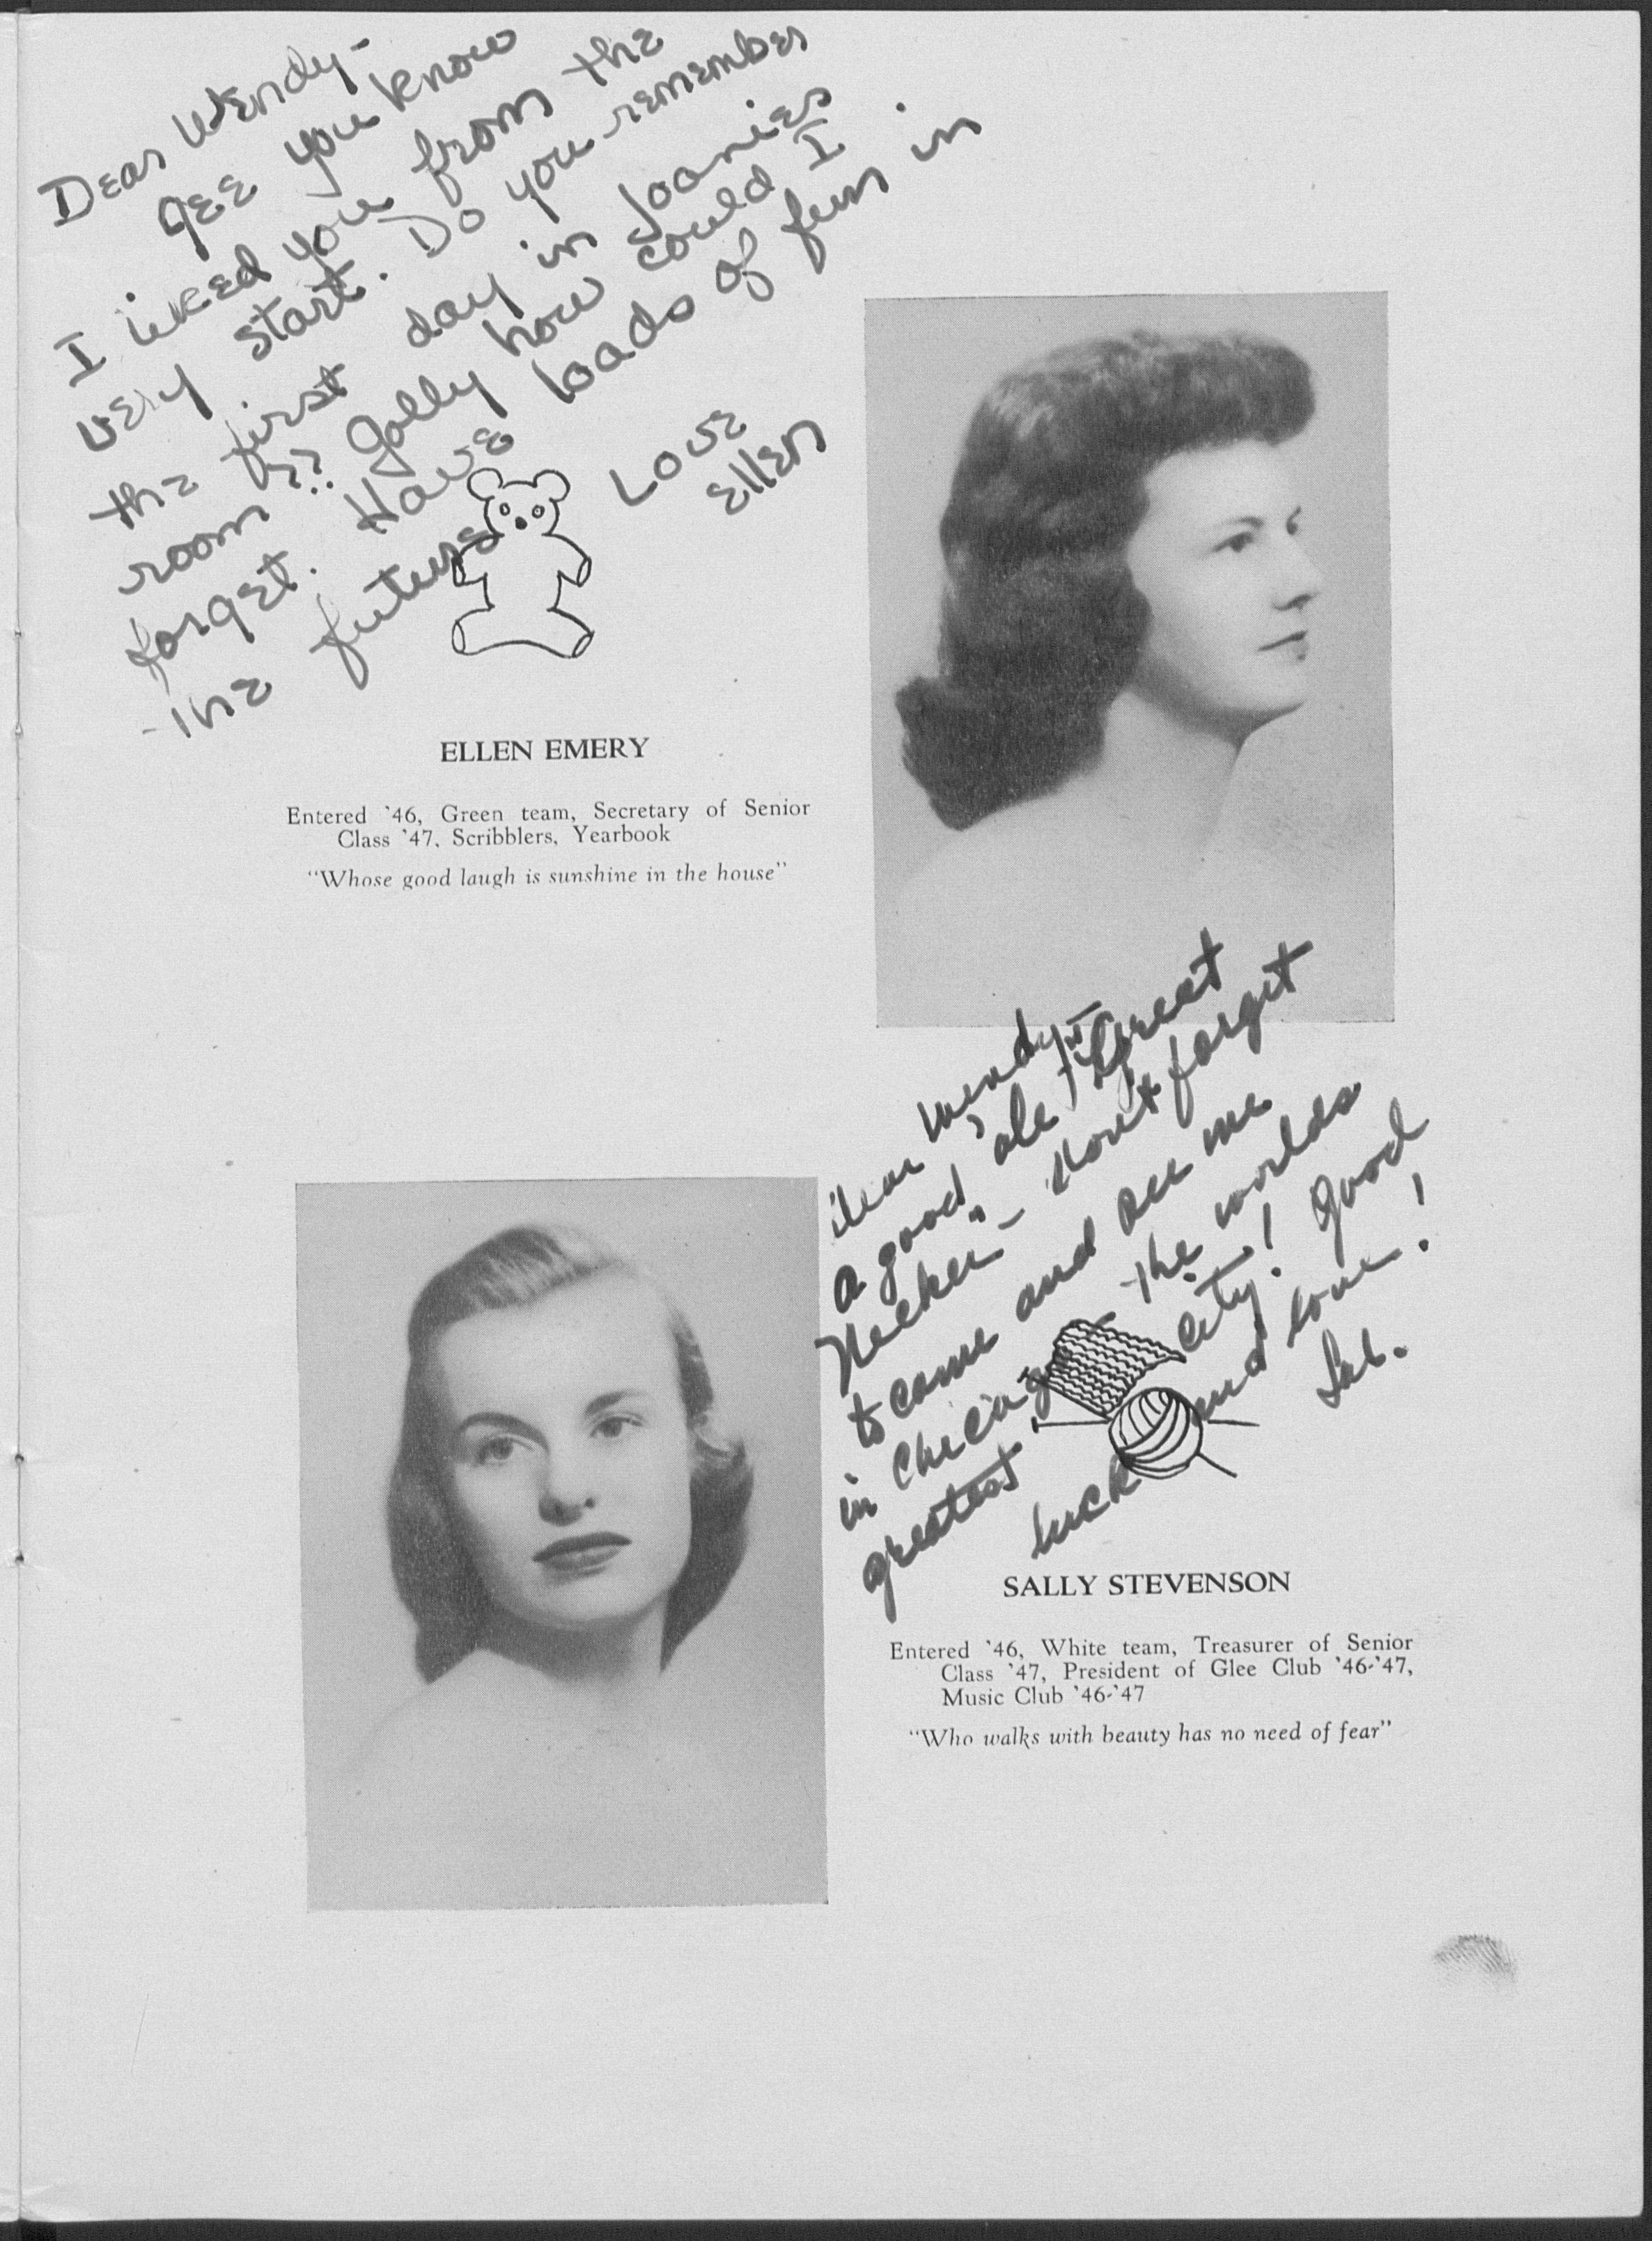 Dear Wendy-
Gee you know
I liked you from the
very start. Do you remember
the first day in Joanies
room?? Golly how could I
forget. Have loads of fun in
the future
Love
Ellen
ELLEN EMERY
Entered '46, Green team, Secretary of Senior
Class '47, Scribblers, Yearbook
"Whose good laugh is sunshine in the house"
Dear Wendy-
A good, ole, "Great
Necker" - Don't forget
to come and see me
in Chicago - the worlds
greatest city! Good
luck and love!
SALLY STEVENSON
Entered '46, White team, Treasurer of Senior
Class '47, President of Glee Club '46-'47,
Music Club '46-'47
"Who walks with beauty has no need of fear"